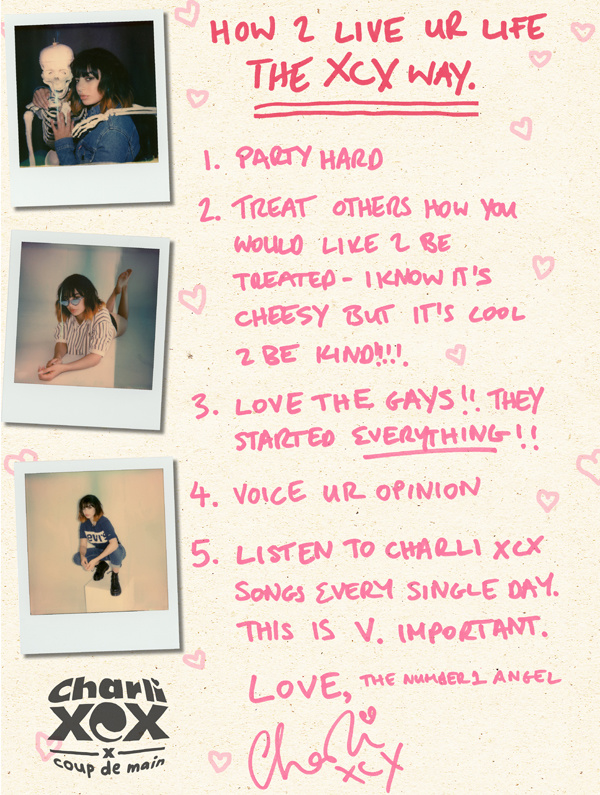 HOW 2 LIVE UR LIFE
THE XCX WAY.
1. PARTY HARD
2. TREAT OTHERS HOW YOU
WOULD LIKE 2 BE
TREATED - I KNOW IT'S
CHEESY BUT IT'S COOL
2 BE KIND!!!!
3. LOVE THE GAYS!! THEY
STARTED EVERYTHING!!
4. VOICE UR OPINION
5. LISTEN TO CHARLI XCX
SONGS EVERY SINGLE DAY.
THIS IS V. IMPORTANT.
LOVE, THE NUMBER 1 ANGEL
Charli
XCX
Levi's
Charli
XCX
x
coup de main